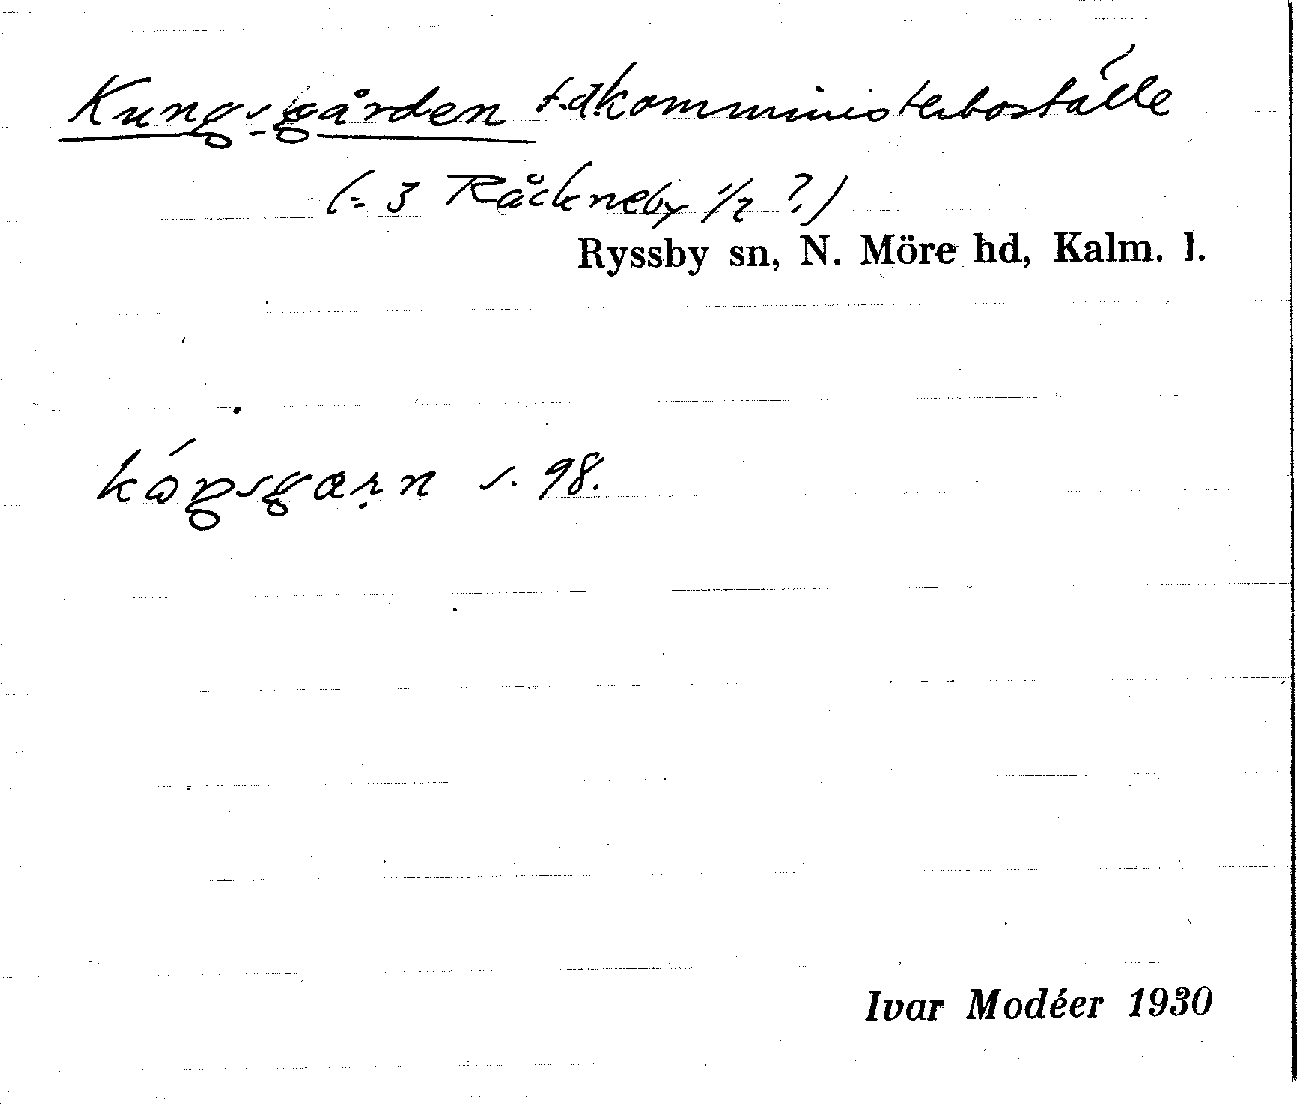 Kungsgården f.d komministerboställe
(= 3 Råckneby 1/2 ?)
Ryssby sn, N. Möre hd, Kalm. l.
s. 98.
Ivar Modéer 1930